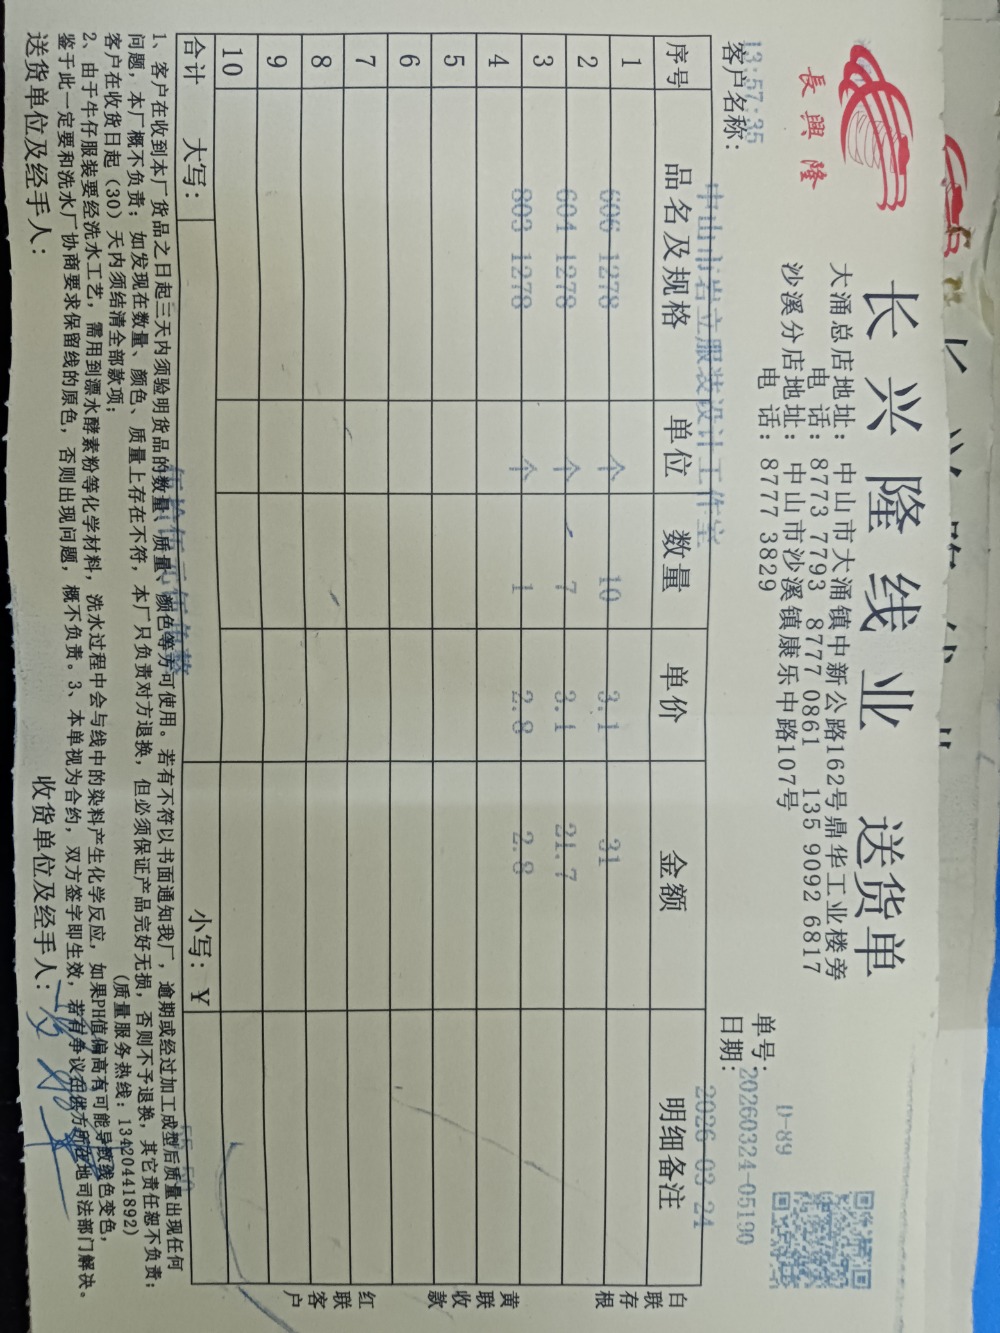 長興隆
长兴隆线业 送货单
大涌总店地址：中山市大涌镇中新公路162号鼎华工业楼旁
电 话：8773 7793 8777 0861 135 9092 6817
沙溪分店地址：中山市沙溪镇康乐中路107号
电 话：8777 3829
D-89
单号：20260324-05190
13:57:35
客户名称：中山市岩立服装设计工作室
日期：2026-03-24
序号 品名及规格 单位 数量 单价 金额 明细备注
1 606 1278 个 10 3.1 31
2 604 1278 个 7 3.1 21.7
3 803 1278 个 1 2.8 2.8
4
5
6
7
8
9
10
合计 大写：伍拾伍元伍角整 小写：¥ 55.50
白联存根
黄联收款
红联客户
1、客户在收到本厂货品之日起三天内须验明货品的数量、质量、颜色等方可使用。若有不符以书面通知我厂，逾期或经过加工成型后质量出现任何
问题，本厂概不负责；如发现在数量、颜色、质量上存在不符，本厂只负责对方退换，但必须保证产品完好无损，否则不予退换，其它责任恕不负责；
客户在收货日起（30）天内须结清全部款项；（质量服务热线：13420441892）
2、由于牛仔服装要经洗水工艺，需用到漂水酵素粉等化学材料，洗水过程中会与线中的染料产生化学反应，如果PH值偏高有可能导致线色变色，
鉴于此一定要和洗水厂协商要求保留线的原色，否则出现问题，概不负责。3、本单视为合约，双方签字即生效，若有争议在供方所在地司法部门解决。
送货单位及经手人： 收货单位及经手人：